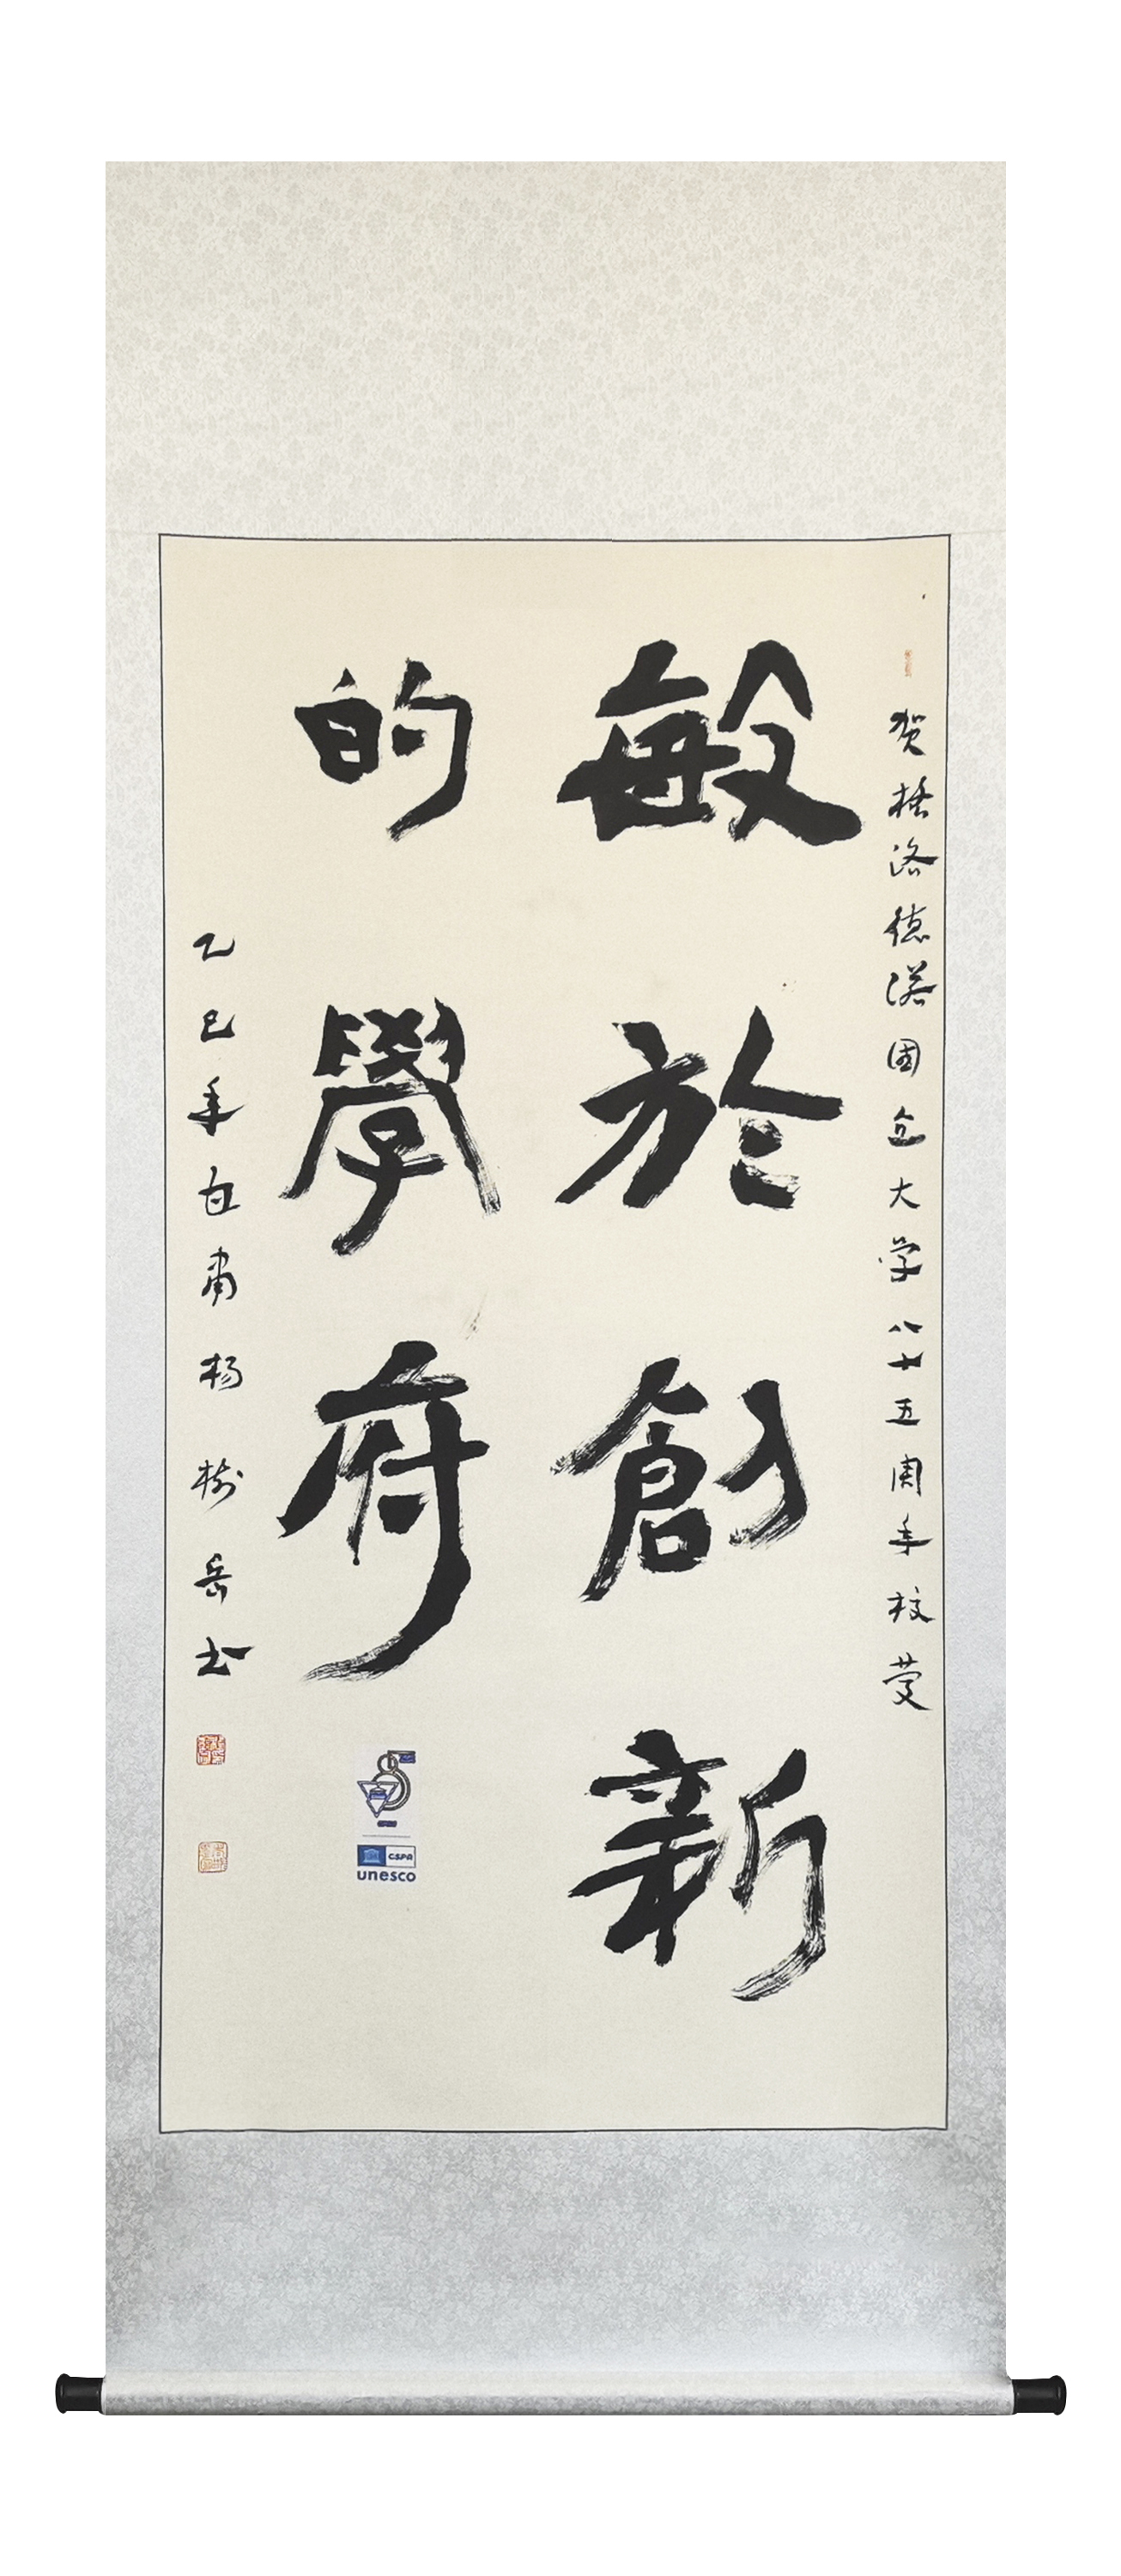 贺格洛德诺国立大学八十五周年校庆
敏於創新
的學府
乙巳年甘肅杨树岳书
CSPA
unesco